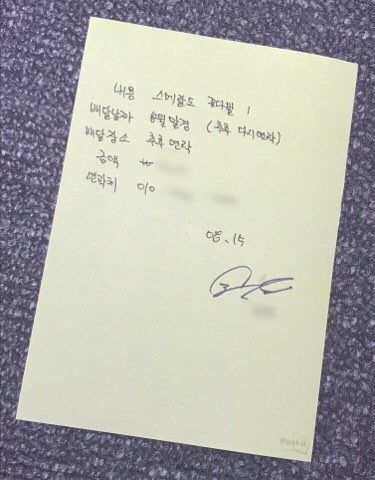 내용 스메랄도 꽃다발 1
배달날짜 8월 말경 (추후 다시 연락)
배달장소 추후 연락
금액 ₩
연락처 010
08.15
Post-it